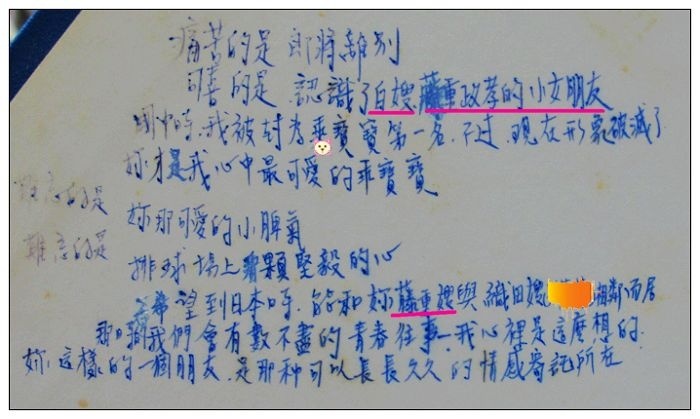 痛苦的是 即將離別
可喜的是 認識了白嫂 藤重政孝的小女朋友
國中時.我被封為乖寶寶第一名.不过.現在形象破滅了
妳才是我心中最可愛的乖寶寶
難忘的是
妳那可愛的小脾氣
難忘的是
排球場上 那顆堅毅的心
希望到日本時.能和妳藤重嫂與織田嫂 相鄰而居
那時我們會有數不盡的青春往事—我心裡是這麼想的.
妳.這樣的一個朋友.是那种可以長長久久的情感寄託所在